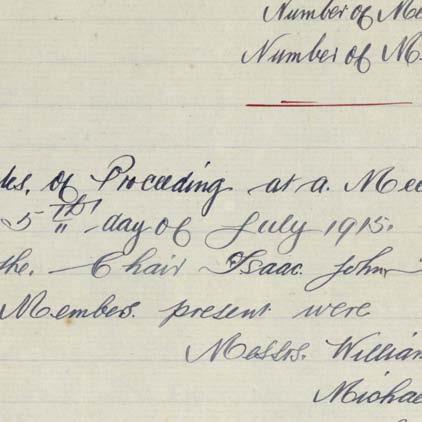 Number of Me
Number of M
tes. of Proceeding at a. Mee
5th day of July 1915.
the. Chair Isaac John
Members. present were
Messrs. William
Michae